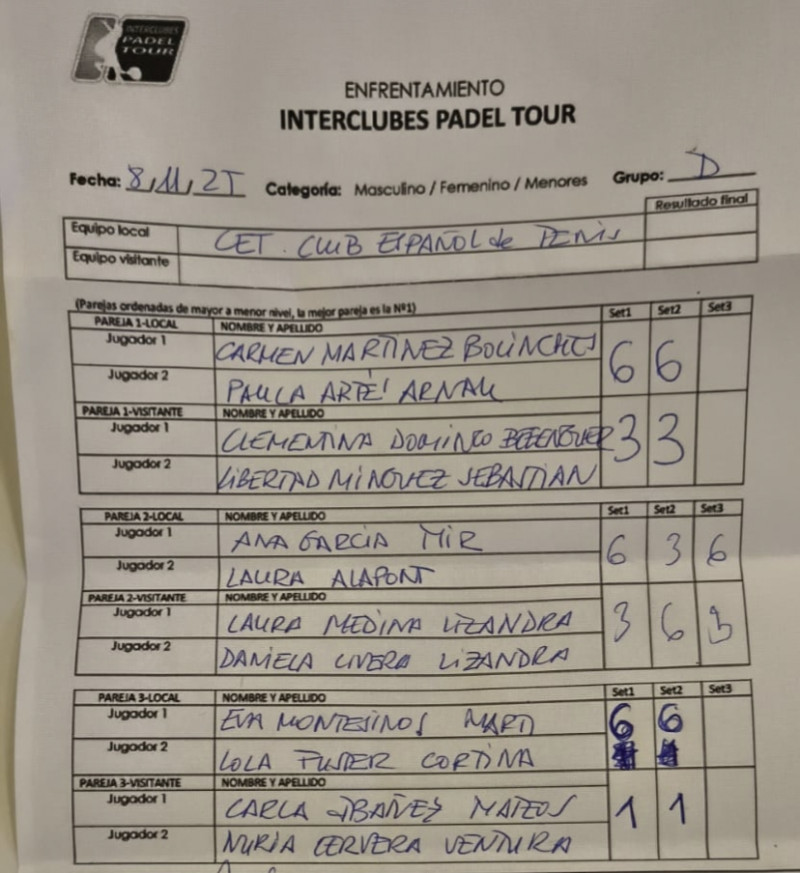 INTERCLUBES
PADEL
TOUR
ENFRENTAMIENTO
INTERCLUBES PADEL TOUR
Fecha: 8/11/25 Categoría: Masculino / Femenino / Menores Grupo: D
Resultado final
Equipo local CET. CLUB ESPAÑOL de TENIS
Equipo visitante
(Parejas ordenadas de mayor a menor nivel, la mejor pareja es la Nº1)
PAREJA 1-LOCAL NOMBRE Y APELLIDO Set1 Set2 Set3
Jugador 1 CARMEN MARTINEZ BOLINCHES 6 6
Jugador 2 PAULA ARTÉS ARNAU
PAREJA 1-VISITANTE NOMBRE Y APELLIDO
Jugador 1 CLEMENTINA DOMINGO BERENGUER 3 3
Jugador 2 LIBERTAD MINGUEZ SEBASTIAN
PAREJA 2-LOCAL NOMBRE Y APELLIDO Set1 Set2 Set3
Jugador 1 ANA GARCIA MIR 6 3 6
Jugador 2 LAURA ALAPONT
PAREJA 2-VISITANTE NOMBRE Y APELLIDO
Jugador 1 LAURA MEDINA LIZANDRA 3 6 3
Jugador 2 DANIELA LIVERA LIZANDRA
PAREJA 3-LOCAL NOMBRE Y APELLIDO Set1 Set2 Set3
Jugador 1 EVA MONTESINOS MARTI 6 6
Jugador 2 LOLA FUSTER CORTINA
PAREJA 3-VISITANTE NOMBRE Y APELLIDO
Jugador 1 CARLA IBAÑEZ MATEOS 1 1
Jugador 2 NURIA CERVERA VENTURA